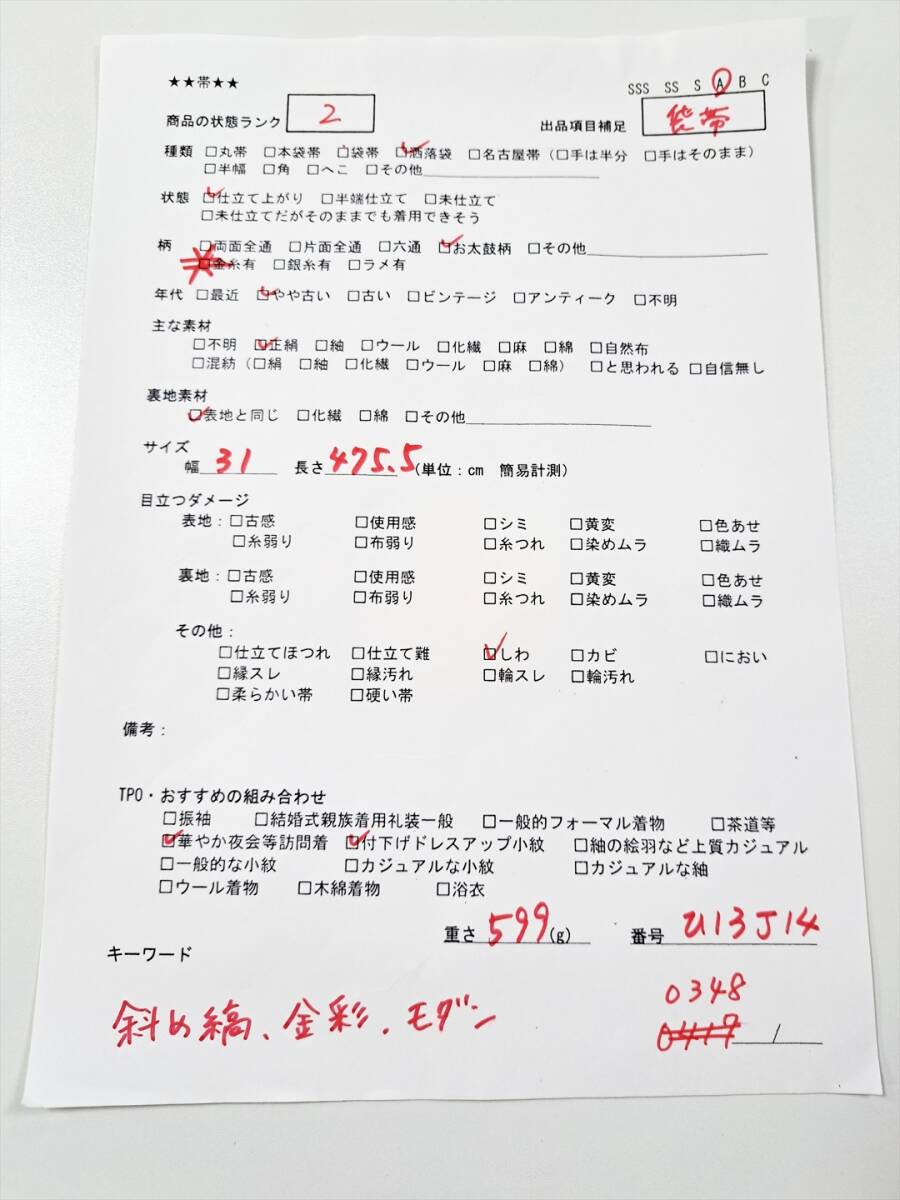 ★★帯★★
SSS SS S A B C
商品の状態ランク 2
出品項目補足 袋帯
種類 □丸帯 □本袋帯 □袋帯 □洒落袋 □名古屋帯（□手は半分 □手はそのまま）
□半幅 □角 □へこ □その他
状態 □仕立て上がり □半端仕立て □未仕立て
□未仕立てだがそのままでも着用できそう
柄 □両面全通 □片面全通 □六通 □お太鼓柄 □その他
□金糸有 □銀糸有 □ラメ有
年代 □最近 □やや古い □古い □ビンテージ □アンティーク □不明
主な素材
□不明 □正絹 □紬 □ウール □化繊 □麻 □綿 □自然布
□混紡（□絹 □紬 □化繊 □ウール □麻 □綿） □と思われる □自信無し
裏地素材
□表地と同じ □化繊 □綿 □その他
サイズ
幅 31 長さ 475.5 (単位：cm 簡易計測)
目立つダメージ
表地：□古感 □使用感 □シミ □黄変 □色あせ
□糸弱り □布弱り □糸つれ □染めムラ □織ムラ
裏地：□古感 □使用感 □シミ □黄変 □色あせ
□糸弱り □布弱り □糸つれ □染めムラ □織ムラ
その他：
□仕立てほつれ □仕立て難 □しわ □カビ □におい
□縁スレ □縁汚れ □輪スレ □輪汚れ
□柔らかい帯 □硬い帯
備考：
TPO・おすすめの組み合わせ
□振袖 □結婚式親族着用礼装一般 □一般的フォーマル着物 □茶道等
□華やか夜会等訪問着 □付下げドレスアップ小紋 □紬の絵羽など上質カジュアル
□一般的な小紋 □カジュアルな小紋 □カジュアルな紬
□ウール着物 □木綿着物 □浴衣
重さ 599(g) 番号 U13J14
キーワード
斜め縞、金彩、モダン
0348
0419 /